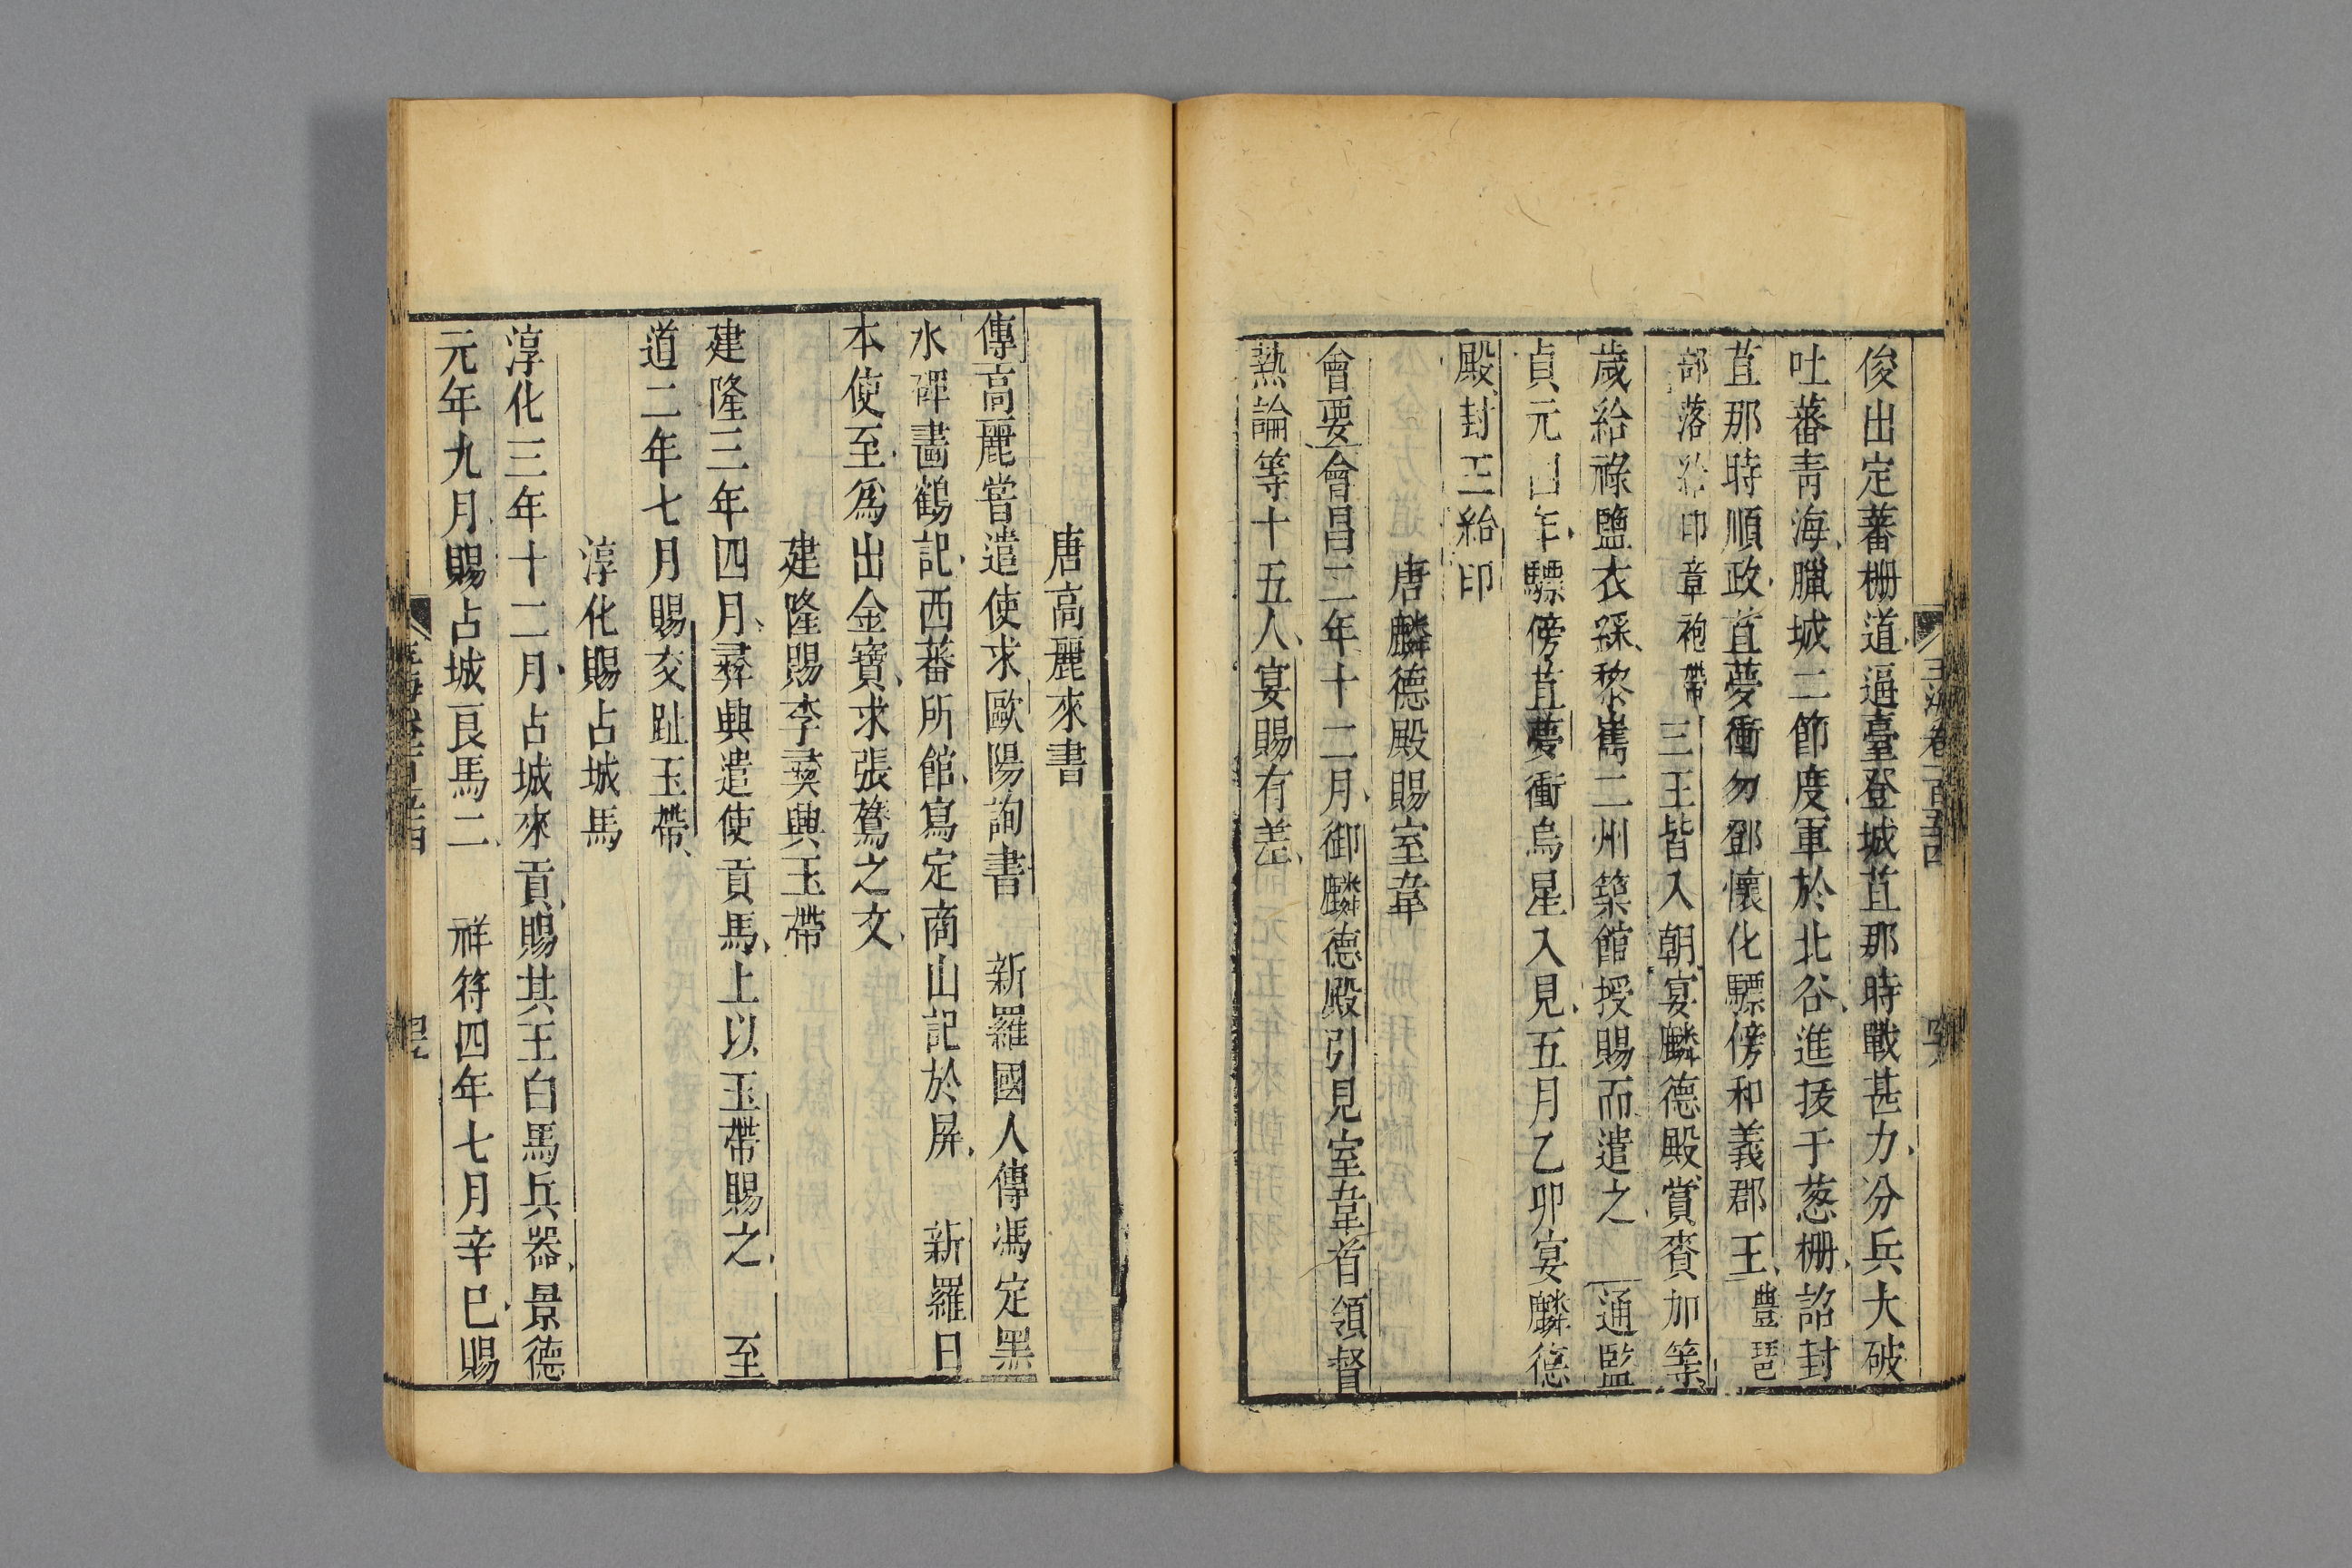 俊出定蕃柵道逼臺登城苴那時戰甚力分兵大破
吐蕃青海臘城二節度軍於北谷進拔于葱柵詔封
苴那時順政苴夢衝勿鄧懷化驃傍和義郡王豐琶
部落給印章袍帶三王皆入朝宴麟德殿賞賚加等
歲給祿鹽衣綵黎巂二州築館授賜而遣之 通監
貞元四年驃傍苴夢衝烏星入見五月乙卯宴麟德
殿封王給印
唐麟德殿賜室韋
會要會昌二年十二月御麟德殿引見室韋首領督
熱論等十五人宴賜有差
唐高麗來書
傳高麗嘗遣使求歐陽詢書 新羅國人傳馮定黑
水碑畫鶴記西蕃所館寫定商山記於屏 新羅日
本使至爲出金寶求張鷟之文
建隆賜李彝興玉帶
建隆三年四月彝興遣使貢馬上以玉帶賜之 至
道二年七月賜交趾玉帶
淳化賜占城馬
淳化三年十二月占城來貢賜其王白馬兵器景德
元年九月賜占城良馬二 祥符四年七月辛巳賜